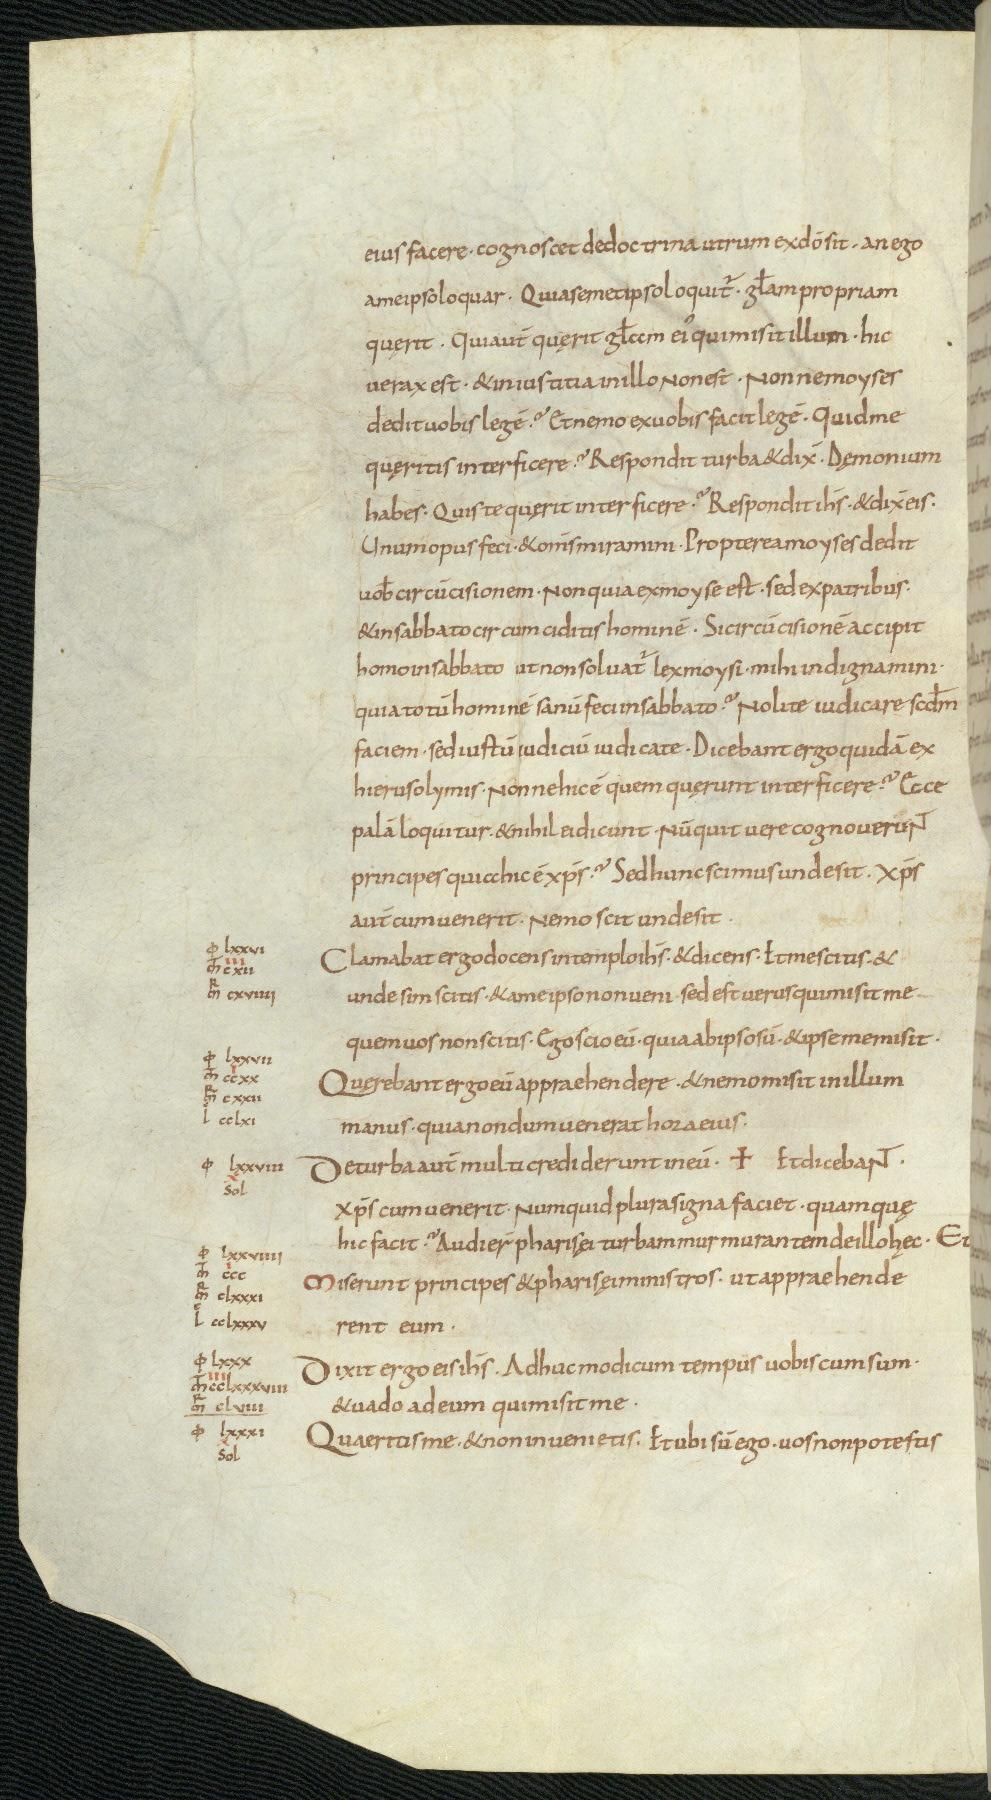 eius facere · cognoscet de doctrina utrum ex dō sit · an ego
a me ipso loquar · Qui a semetipso loquit̄ · gl̄am propriam
quęrit · Qui aut̄ quęrit gl̄am ei᾿ qui misit illum · hic
uerax est · & iniustitia in illo Non est · Nonne moyses
dedit uobis legē? Et nemo ex uobis facit legē · Quid me
quęritis interficere? Respondit turba & dix̄ · Dęmonium
habes · Quis te quęrit interficere? Respondit ih̄s · & dix̄ eis ·
Unum opus feci · & om̄s miramini · Propterea moyses dedit
uob̄ circūcisionem · Non quia ex moyse est · sed ex patribus ·
& in sabbato circumciditis hominē · Si circūcisionē accipit
homo in sabbato ut non soluat̄ lex moysi · mihi indignamini ·
quia totū hominē sanū feci in sabbato? Nolite iudicare scd̄m
faciem · sed iustū iudiciū iudicate · Dicebant ergo quidā ex
hierusolymis · Nonne hic ē quem quęrunt interficere? Ecce
palā loquitur · & nihil ei dicunt · Nūquit uere cognoueruNT
principes quia hic ē xp̄s? Sed hunc scimus unde sit · Xp̄s
aut̄ cum uenerit · Nemo scit unde sit ·
φ lxxvi
m̄ cxii iii
m̄ cxviiii
Clamabat ergo docens in templo ih̄s · & dicens · Et me scitis · &
unde sim scitis · & a me ipso non ueni · sed est uerus qui misit me
quem uos non scitis · Ego scio eū · quia ab ipso sū · & ipse me misit ·
φ lxxvii
m̄ ccxx i
m̄ cxxii
l cclxi
Quęrebant ergo eū appraehendere · & nemo misit in illum
manus · quia nondum uenerat hora eius ·
φ lxxviii
x
Sol
De turba aut̄ multi crediderunt in eū · ✝ Et dicebaNT ·
xp̄s cum uenerit · Numquid plura signa faciet · quam quę
hic facit? Audier̄ pharisęi turbam murmurantem de illo hęc · Et
φ lxxviiii
m̄ ccc i
m̄ clxxxi
l cclxxxv
Miserunt principes & pharisęi ministros · ut appraehende
rent eum ·
φ lxxx
m̄ cclxxxviii iiii
m̄ clviii
Dixit ergo eis ih̄s · Adhuc modicum tempus uobiscum sum ·
& uado ad eum qui misit me ·
φ lxxxi
x
Sol
Quaeritis me · & non inuenietis · Et ubi sū ego · uos non potestis